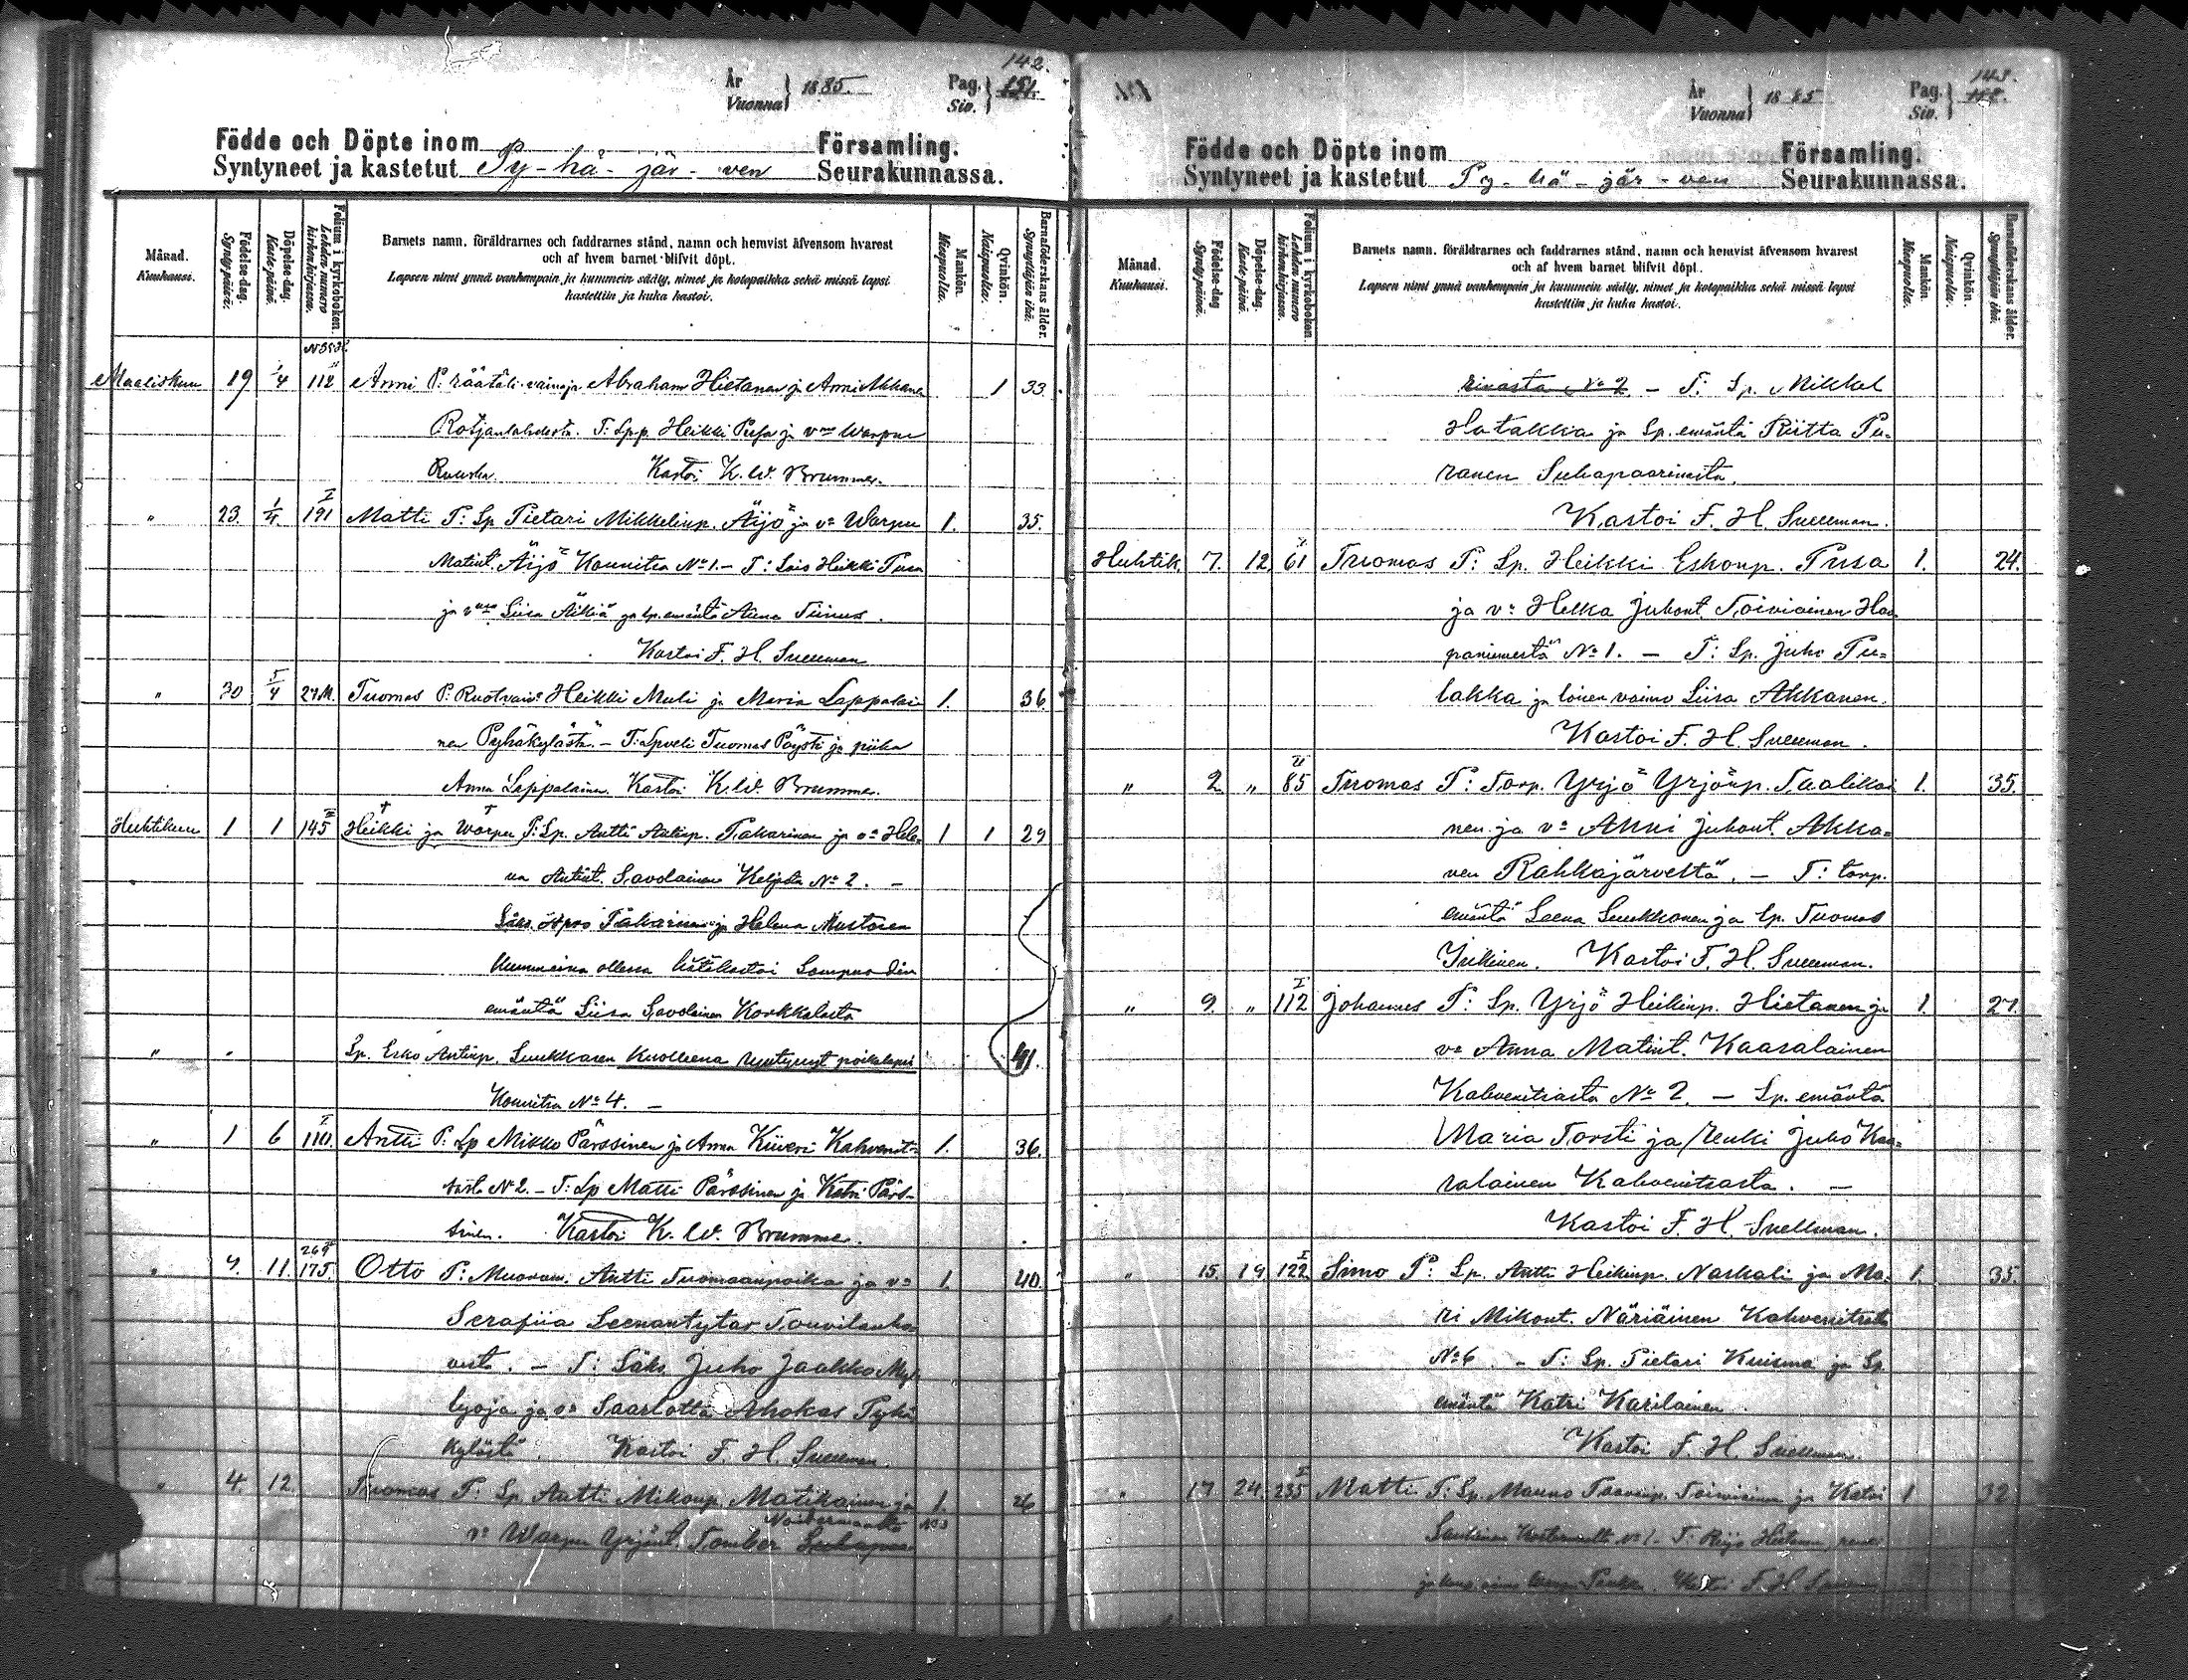 142.
År
Vuonna } 1885.
Pag.
Siv. } 151.
Födde och Döpte inom Församling.
Syntyneet ja kastetut Py-hä-jär-ven Seurakunnassa.
Månad.
Kuukausi.
Födelse-dag.
Syntypäivä.
Döpelse-dag.
Kaste-päivä.
Folium i kyrkoboken.
Lehden numero kirkonkirjassa.
Barnets namn, föräldrarnes och faddrarnes stånd, namn och hemvist äfvensom hvarest
och af hvem barnet blifvit döpt.
Lapsen nimi ynnä vanhempain ja kummein sääty, nimet ja kotopaikka sekä missä lapsi
kastettiin ja kuka kastoi.
Mankön.
Miespuolia.
Qvinkön.
Naispuolia.
Barnaföderskans ålder.
Synnyttäjän ikä.
Maaliskuu 19 1/4 112 Anni P: räätäli-vainaja Abraham Hietanen ja Anni Akkanen 1 33
Rotjanlahdesta. T: Spp. Heikki Pusa ja vmo Warpu
Ruuska. Kastoi K. W. Brummer.
" 23. 1/4 I 191 Matti P: Sp Pietari Mikkelinp. Äijö ja vo Warpu 1. 35.
Matint. Äijö Konnitsa No 1. - T: Lois Heikki Pusa
ja vmo Liisa Äikiä ja sp. emäntä Anna Tiinus.
Kastoi F. H. Snellman
" 30 5/4 27 M. Tuomas P: Ruotivaiv. Heikki Muli ja Maria Lappalai- 1. 36
nen Pyhäkylästä. - T: Spveli Tuomas Pöysti ja piika
Anna Lappalainen. Kastoi K. W. Brummer.
Huhtikuu 1 1 145 Heikki ja Warpu P: Sp. Antti Antinp. Pakarinen ja vo Hele- 1 1 29
na Antint. Savolainen Keljola No 2. -
Läks. Pakarinen ja Helena Mustonen
kummeina ollessa hätäkastoi Lampuodin
emäntä Liisa Savolainen Konkkalasta
" Sp. Esko Antinp. Luukkanen kuolleena syntynyt poikalapsi 41.
Konnitsa No 4. -
" 1 6 I 110. Antti P: Sp Mikko Pärssinen ja Anna Kiiveri Kahvenit- 1. 36.
sasta No 2. - T: Sp Matti Pärssinen ja Katri Pärs-
sinen. Kastoi K. W. Brummer.
" 4. 11. 269 175. Otto P: Muonam. Antti Tuomaanpoika ja vo 1. 40.
Serafiia Leenantytar Touvilanho-
vista. - T: Läks. Juho Jaakko Myl-
lyoja ja vo Saarlotta Ahokas Pyhä
kylästä. Kastoi F. H. Snellman.
" 4. 12. Tuomas P: Sp. Antti Mikonp. Matikainen ja 1. 26
Noitermaalta No 3
vo Warpu Yrjönt. Tomber Suhapaa-
143.
År
Vuonna } 1885
Pag.
Siv. }
Födde och Döpte inom Församling.
Syntyneet ja kastetut Py-hä-jär-ven Seurakunnassa.
Månad.
Kuukausi.
Födelse-dag
Syntypäivä.
Döpelse-dag.
Kaste-päivä.
Folium i kyrkoboken.
Lehden numero kirkonkirjassa.
Barnets namn, föräldrarnes och faddrarnes stånd, namn och hemvist äfvensom hvarest
och af hvem barnet blifvit döpt.
Lapsen nimi ynnä vanhempain ja kummein sääty, nimet ja kotopaikka sekä missä lapsi
kastettiin ja kuka kastoi.
Mankön.
Miespuolia.
Qvinkön.
Naispuolia.
Barnaföderskans ålder.
Synnyttäjän ikä.
rinasta No 2 - T: Sp. Mikkel
Hatakka ja Sp. emäntä Riitta Pu-
ranen Suhapaarinasta.
Kastoi F. H. Snellman.
Huhtik. 7. 12. 61 Tuomas P: Sp. Heikki Eskonp. Pusa 1. 24.
ja vo Helka Juhont. Toiviainen Haa-
paniemestä No 1. - T: Sp. Juho Pu-
lakka ja loisen vaimo Liisa Akkanen.
Kastoi F. H. Snellman.
" 2 " II 85 Tuomas P: Torp. Yrjö Yrjönp. Taalikai- 1. 35.
nen ja vo Anni Juhont. Akka-
nen Rahkajärveltä. - T: torp.
emäntä Leena Luukkonen ja Sp. Tuomas
Inkinen. Kastoi F. H. Snellman.
" 9. " I 112 Johannes P: Sp. Yrjö Heikinp. Hietanen ja 1. 27.
vo Anna Matint. Kaasalainen
Kahvenitsasta No 2. - Sp. emäntä
Maria Torsti ja renki Juho Kaa-
salainen Kahvenitsasta. -
Kastoi F. H. Snellman.
" 15. 19 I 122 Simo P: Sp. Antti Heikinp. Naskali ja Ma- 1. 35.
ri Mikont. Näriäinen Kahvenitsasta
No 6. - T: Sp. Pietari Kuisma ja Sp.
emäntä Katri Karilainen.
Kastoi F. H. Snellman.
" 17. 24. I 235 Matti P: Sp. Mauno Paavinp. Toiviainen ja Katri 1 32
No 1 - T: Hietanen
ja Kastoi F. H. Snellman